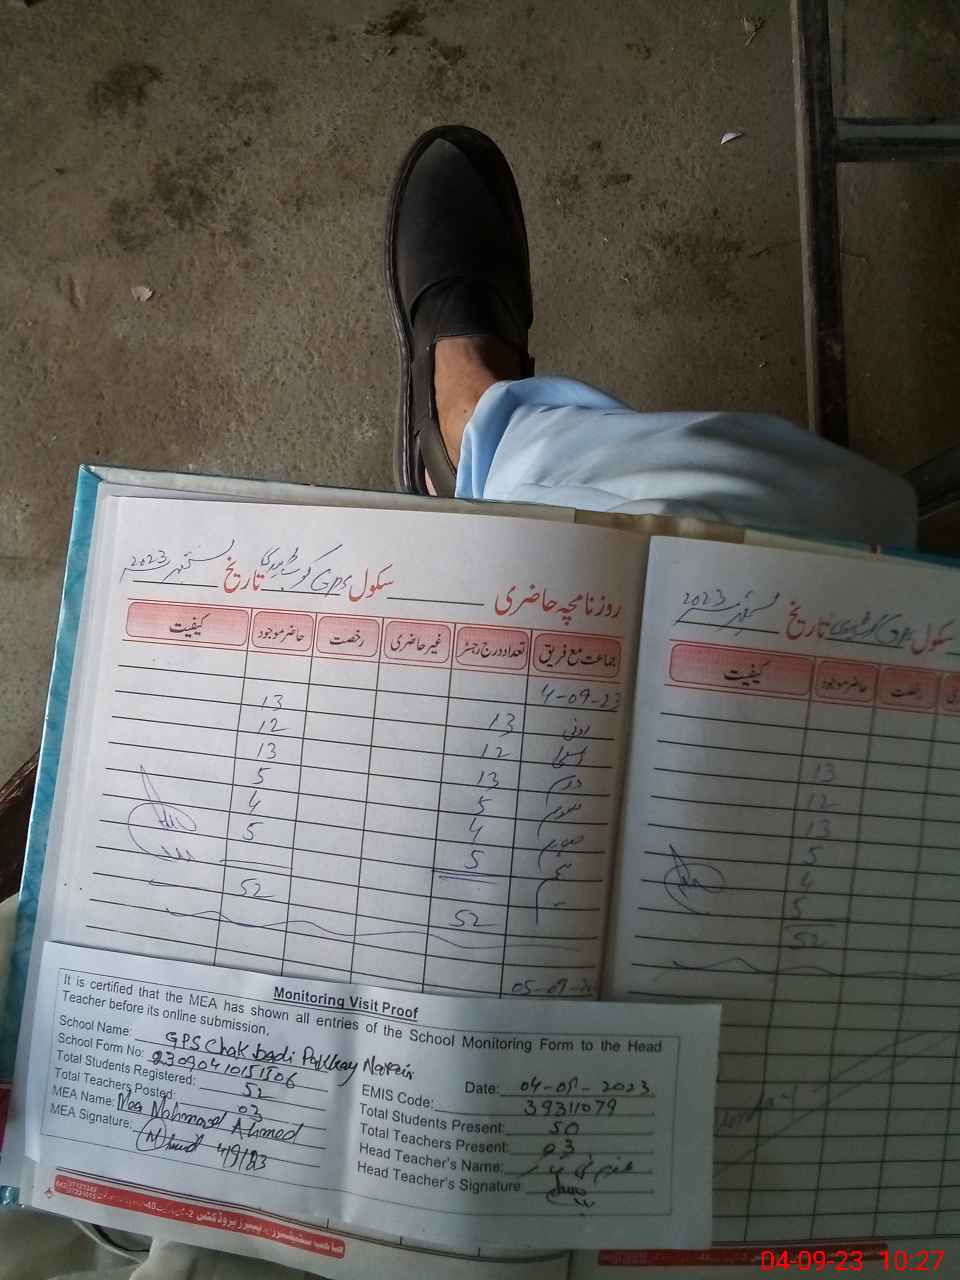 روزنامچہ حاضری سکول GPS تاریخ ستمبر 2023
جماعت مع فریق تعداد درج رجسٹر غیر حاضری رخصت حاضر موجود کیفیت
4-09-23
13
ادنیٰ 13 12
12 13
دوم 13 5
سوم 5 4
4 5
5
52
52
05-09-
سکول GPS تاریخ ستمبر 2023
رخصت حاضر موجود کیفیت
13
12
13
5
4
5
52
Monitoring Visit Proof
It is certified that the MEA has shown all entries of the School Monitoring Form to the Head
Teacher before its online submission.
School Name: GPS Chak Jaadi Pakkay Narain
School Form No: 23090410151506
Total Students Registered: 52
Total Teachers Posted: 03
MEA Name: Mea Mahmood Ahmed
MEA Signature: 4/9/23
Date: 04-09-2023
EMIS Code: 39311079
Total Students Present: 50
Total Teachers Present: 03
Head Teacher's Name:
Head Teacher's Signature
04-09-23 10:27